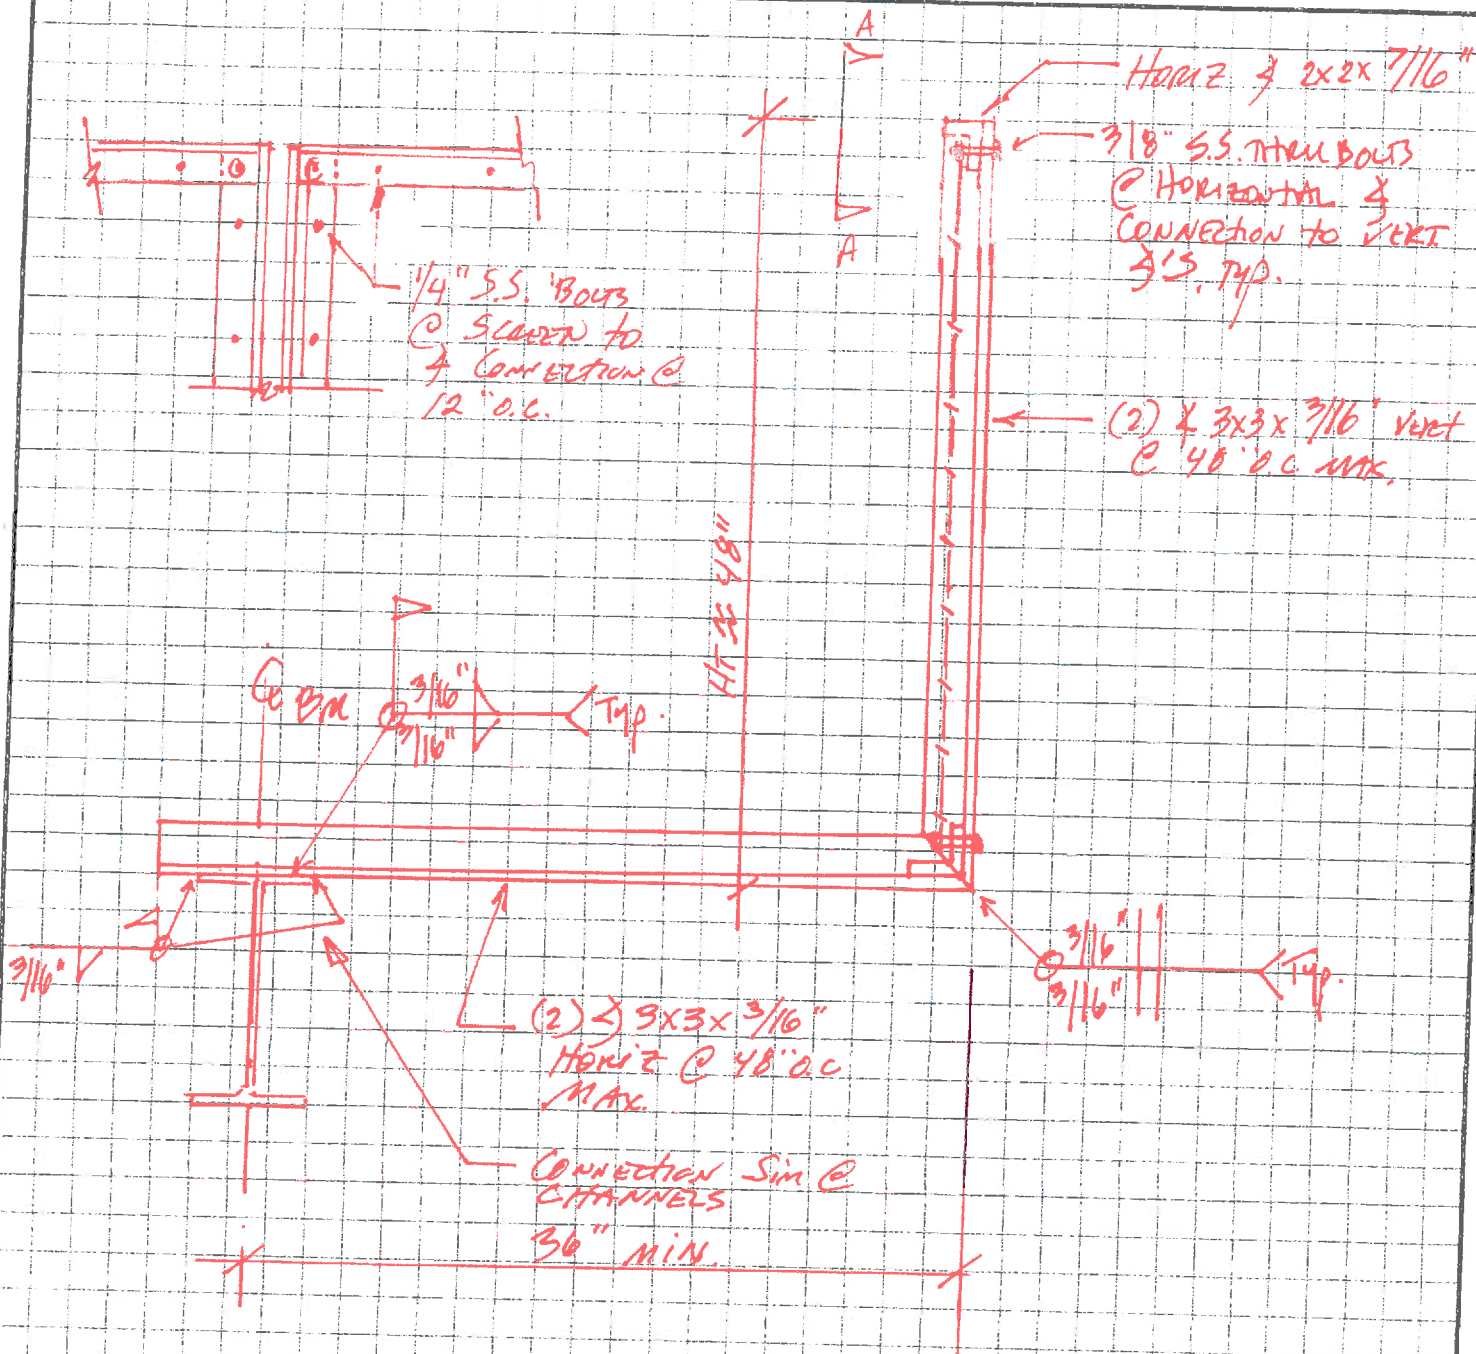 A
HORIZ ∡ 2x2x 3/16"
3/8" S.S. THRU BOLTS
@ HORIZONTAL &
CONNECTION to VERT
∡'S. TYP.
A
1/4" S.S. BOLTS
@ SCREEN to
∡ CONNECTION @
12" O.C.
(2) ∡ 3x3x 3/16" VERT
@ 48" O.C. MAX.
HT ≈ 48"
℄ BM
3/16"
3/16"
Typ.
3/16"
3/16"
3/16"
Typ.
(2) ∡ 3x3x 3/16"
HORIZ @ 48" O.C
MAX.
CONNECTION SIM @
CHANNELS
36" MIN.